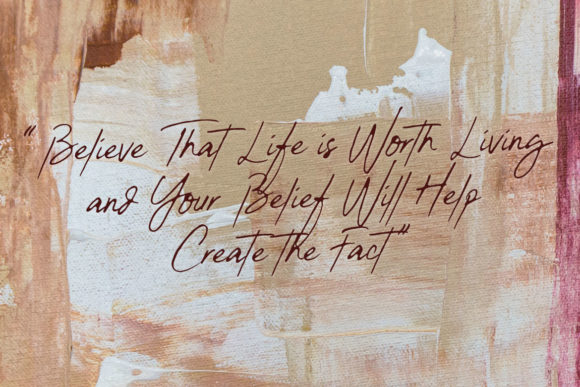 "Believe That Life is Worth Living
and Your Belief Will Help
Create the Fact"